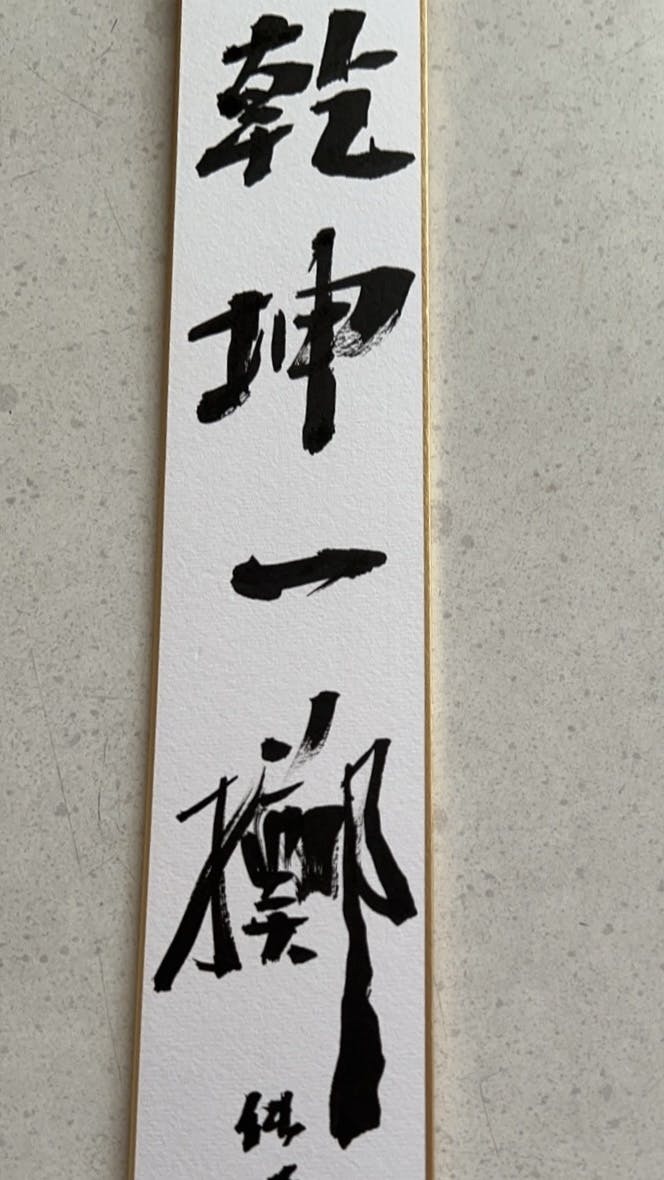 乾坤一擲